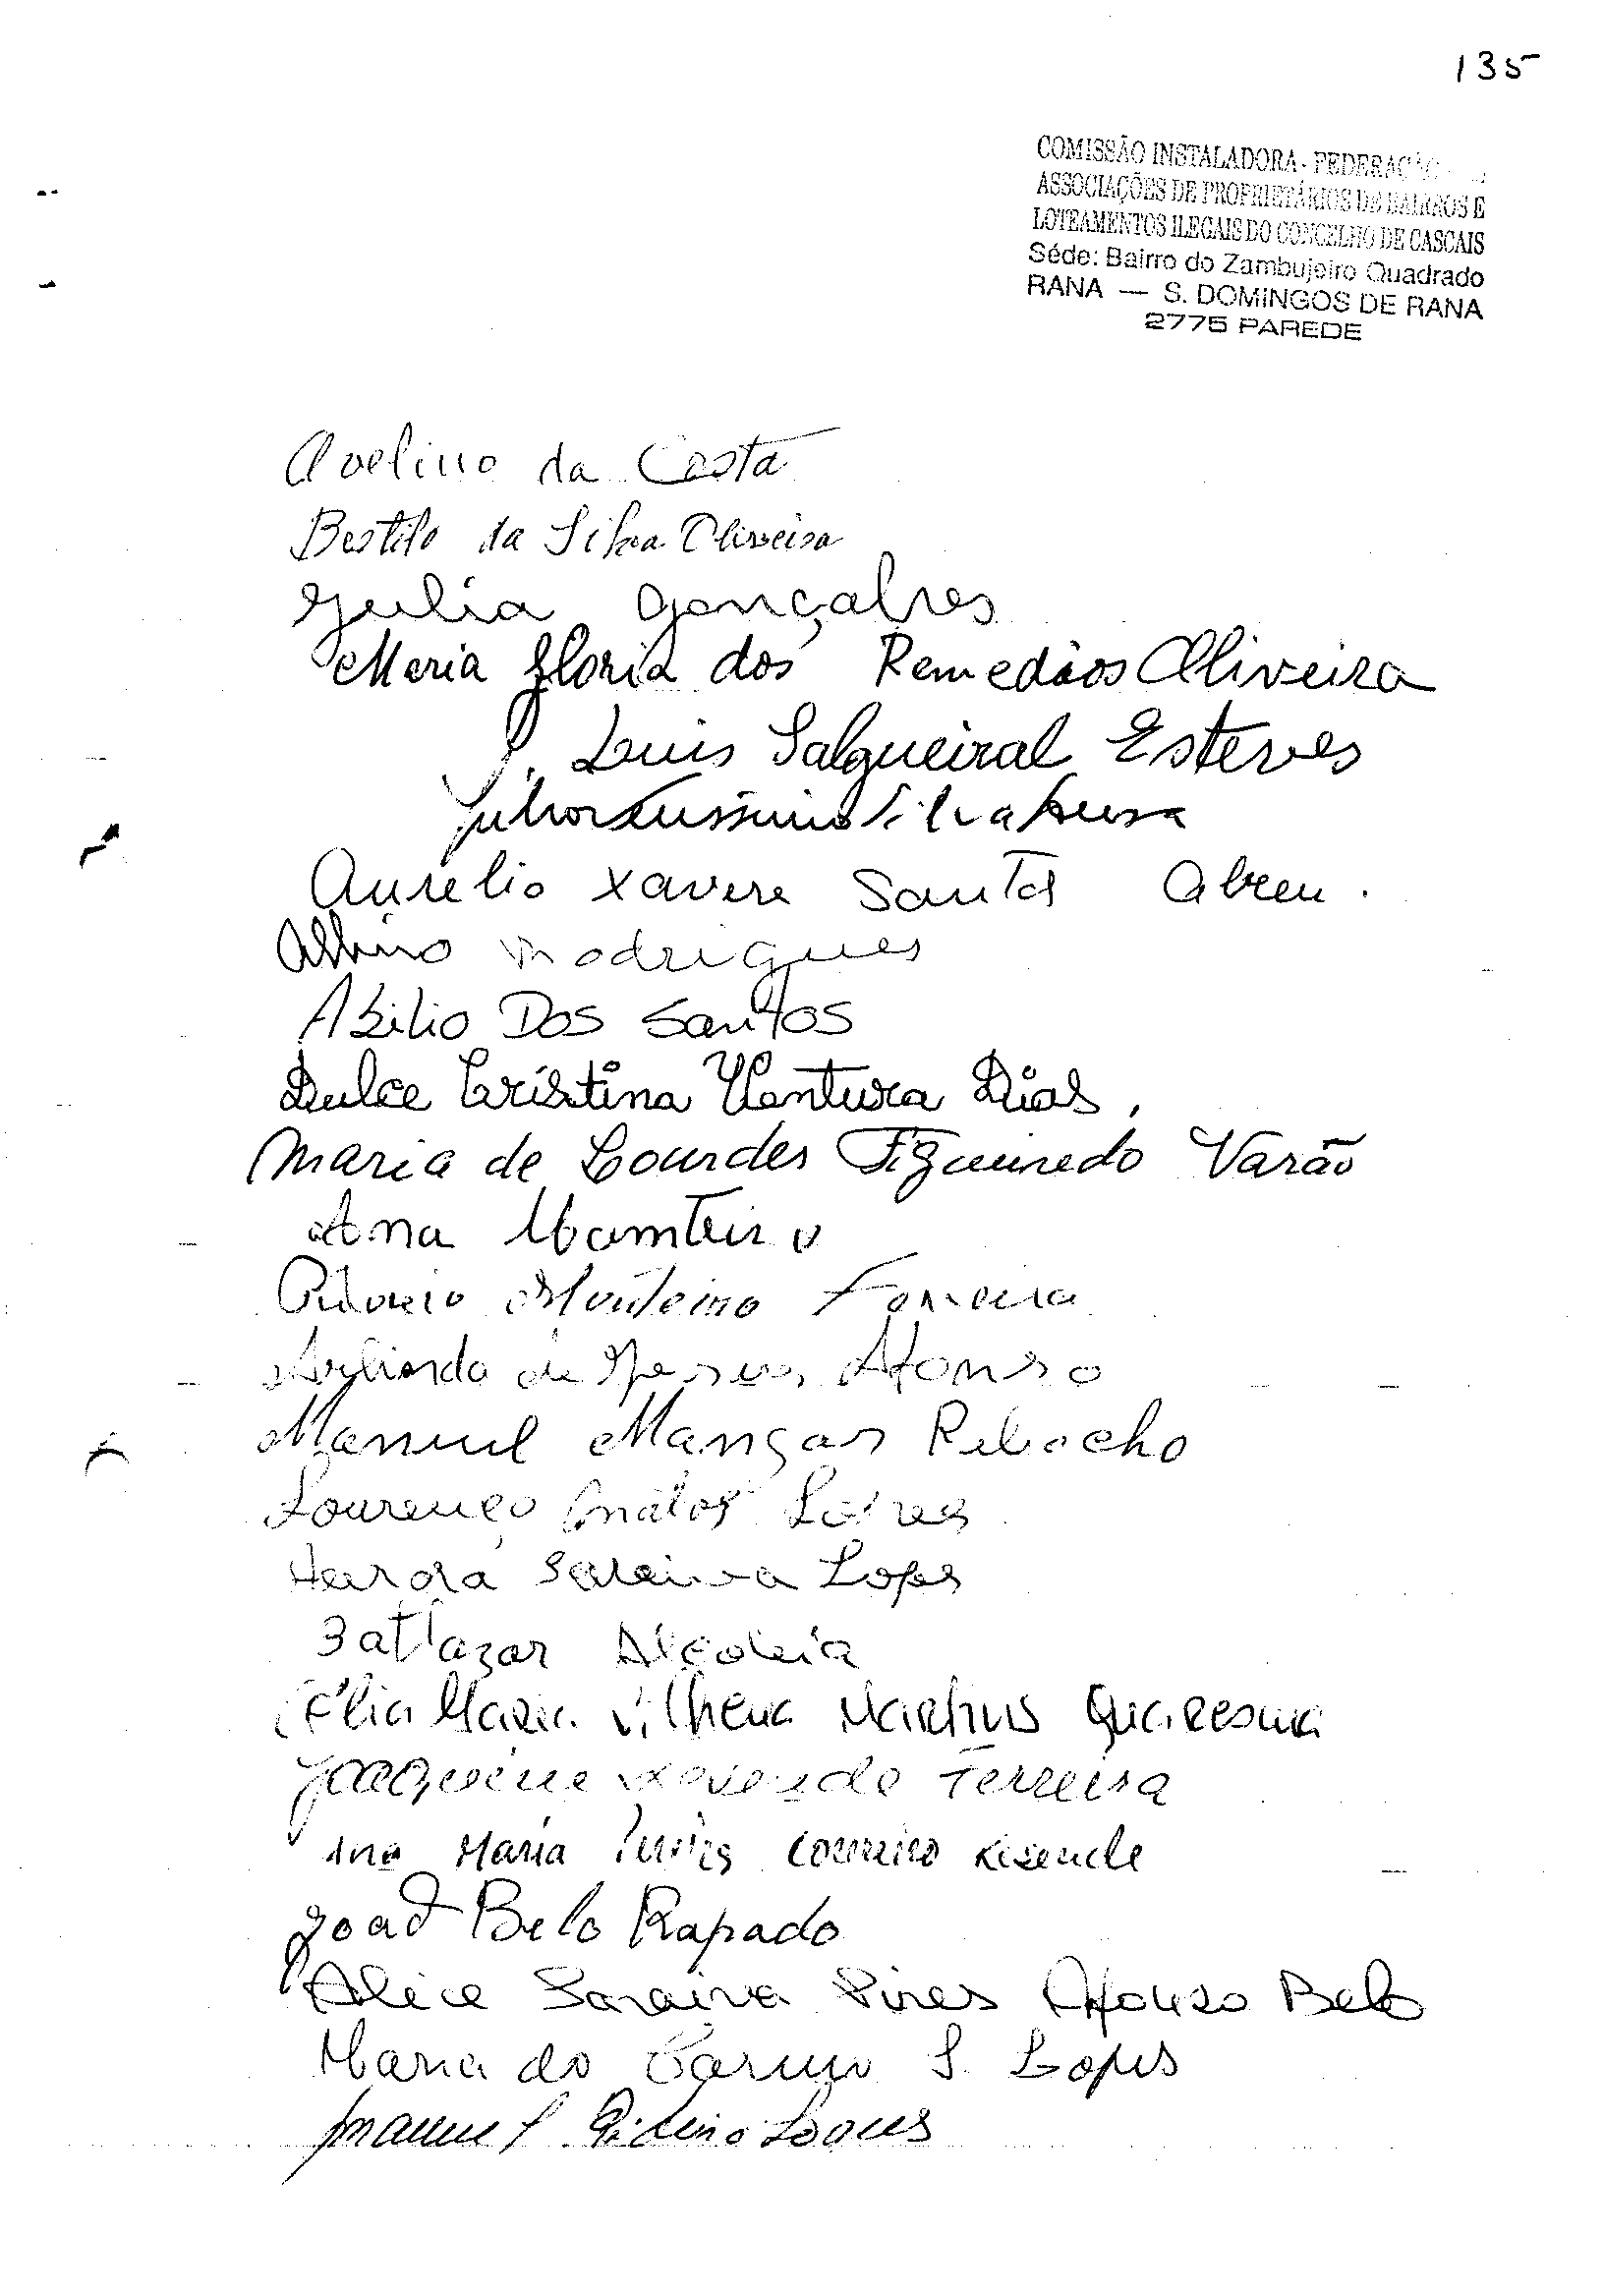 135
COMISSÃO INSTALADORA - FEDERAÇÃO
ASSOCIAÇÕES DE PROPRIETÁRIOS DE BAIRROS E
LOTEAMENTOS ILEGAIS DO CONCELHO DE CASCAIS
Séde: Bairro do Zambujeiro Quadrado
RANA — S. DOMINGOS DE RANA
2775 PAREDE
Avelino da Costa
da Silva Oliveira
Julia Gonçalves
Maria Gloria dos Remedios Oliveira
Luis Salgueiral Esteves
Silva
Aurelio Xavere Santos Abreu.
Albino Rodrigues
Abilio Dos Santos
Dulce Cristina Ventura Dias,
Maria de Lourdes Figueiredo Varão
Ana Monteiro
Monteiro Ferreira
de Jesus Afonso
Manuel Manços Rebocho
Lourenço Matos
Saraiva Lopes
Baltazar
Célia Maria Vilhena Martins Quaresma
Ferreira
Ana Maria Loureiro Resende
João Belo Rapado
Alice Saraiva Pires Afonso Belo
Maria do Carmo S. Lopes
Manuel